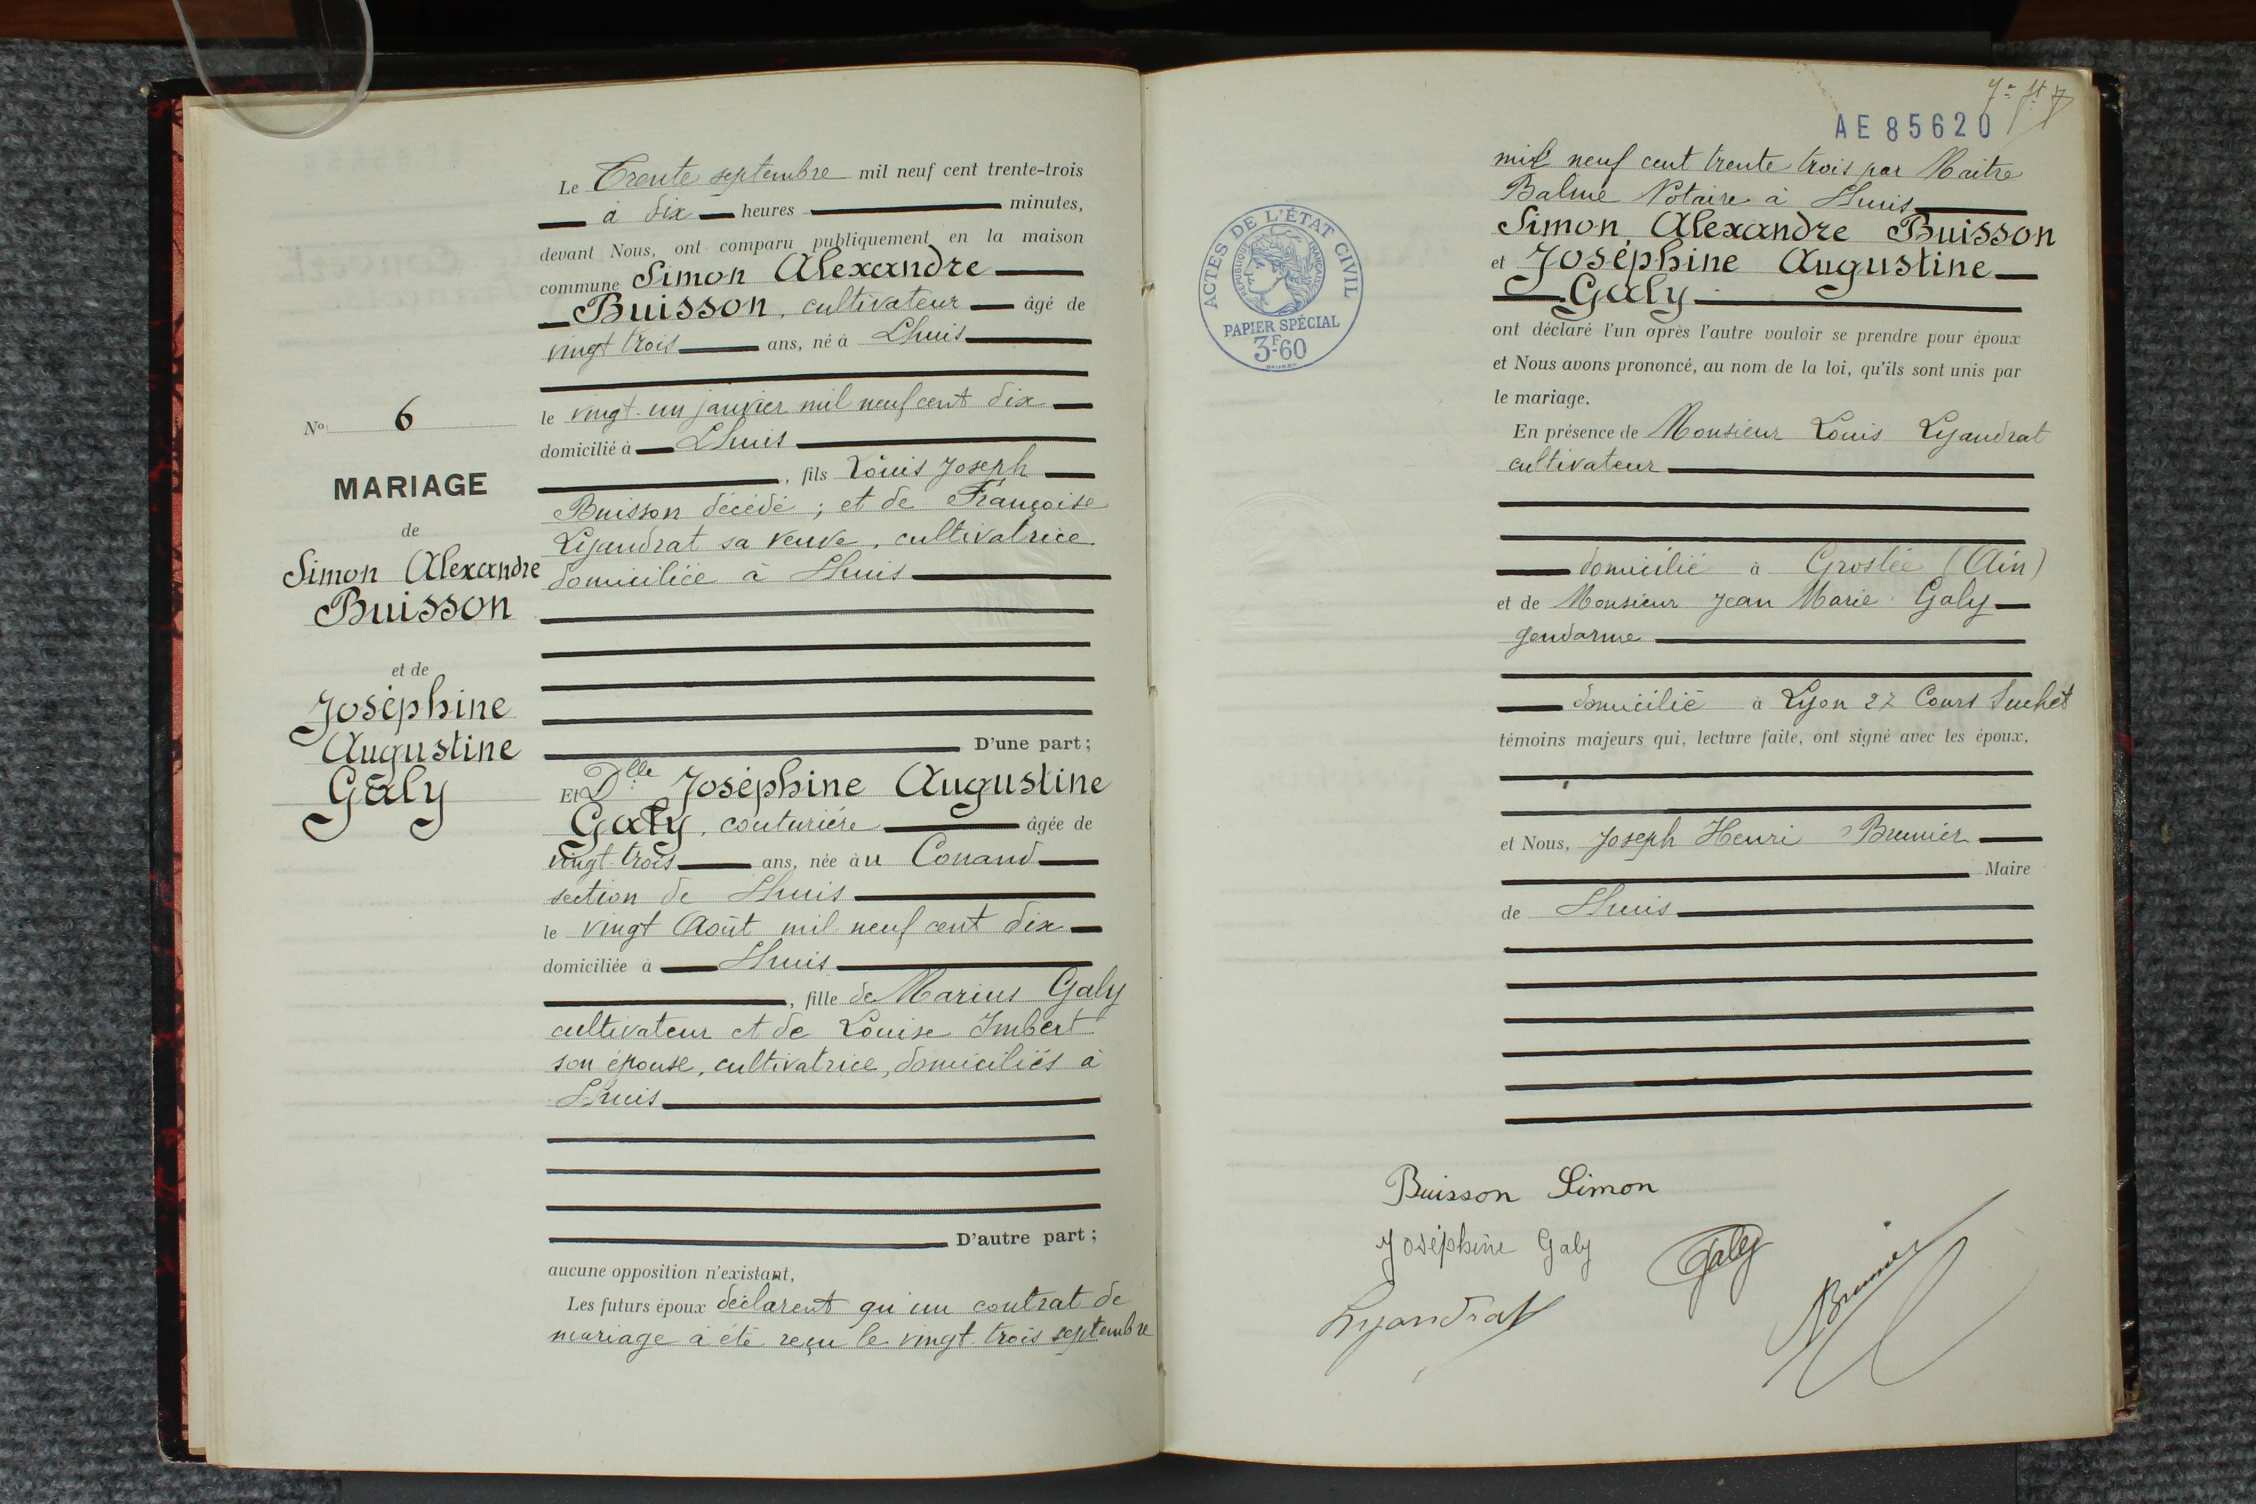 Le Trente septembre mil neuf cent trente-trois
à dix heures minutes,
devant Nous, ont comparu publiquement en la maison
commune Simon Alexandre
Buisson, cultivateur âgé de
vingt trois ans, né à Lhuis
le vingt-un janvier mil neuf cent dix
domicilié à Lhuis
, fils Louis Joseph
Buisson décédé ; et de Françoise
Lyaudrat sa veuve, cultivatrice
domiciliée à Lhuis
D'une part ;
Et Dlle Joséphine Augustine
Galy, couturière âgée de
vingt-trois ans, née àu Conand
section de Lhuis
le vingt Août mil neuf cent dix
domiciliée à Lhuis
, fille de Marius Galy
cultivateur et de Louise Imbert
son épouse, cultivatrice, domiciliés à
Lhuis
D'autre part ;
aucune opposition n'existant,
Les futurs époux déclarent qu'un contrat de
mariage à été reçu le vingt-trois septembre
No 6
MARIAGE
de
Simon Alexandre
Buisson
et de
Joséphine
Augustine
Galy
AE 85620
mil neuf cent trente trois par Maitre
Balme Notaire à Lhuis
Simon Alexandre Buisson
et Joséphine Augustine
Galy
ont déclaré l'un après l'autre vouloir se prendre pour époux
et Nous avons prononcé, au nom de la loi, qu'ils sont unis par
le mariage.
En présence de Monsieur Louis Lyaudrat
cultivateur
domicilié à Groslée (Ain)
et de Monsieur Jean Marie Galy
gendarme
domicilié à Lyon 27 Cours Suchet
témoins majeurs qui, lecture faite, ont signé avec les époux,
et Nous, Joseph Henri Brunier
Maire
de Lhuis
ACTES DE L'ÉTAT CIVIL
RÉPUBLIQUE FRANÇAISE
PAPIER SPÉCIAL
3F60
Buisson Simon
Joséphine Galy
Galy
Lyaudrat
Brunier